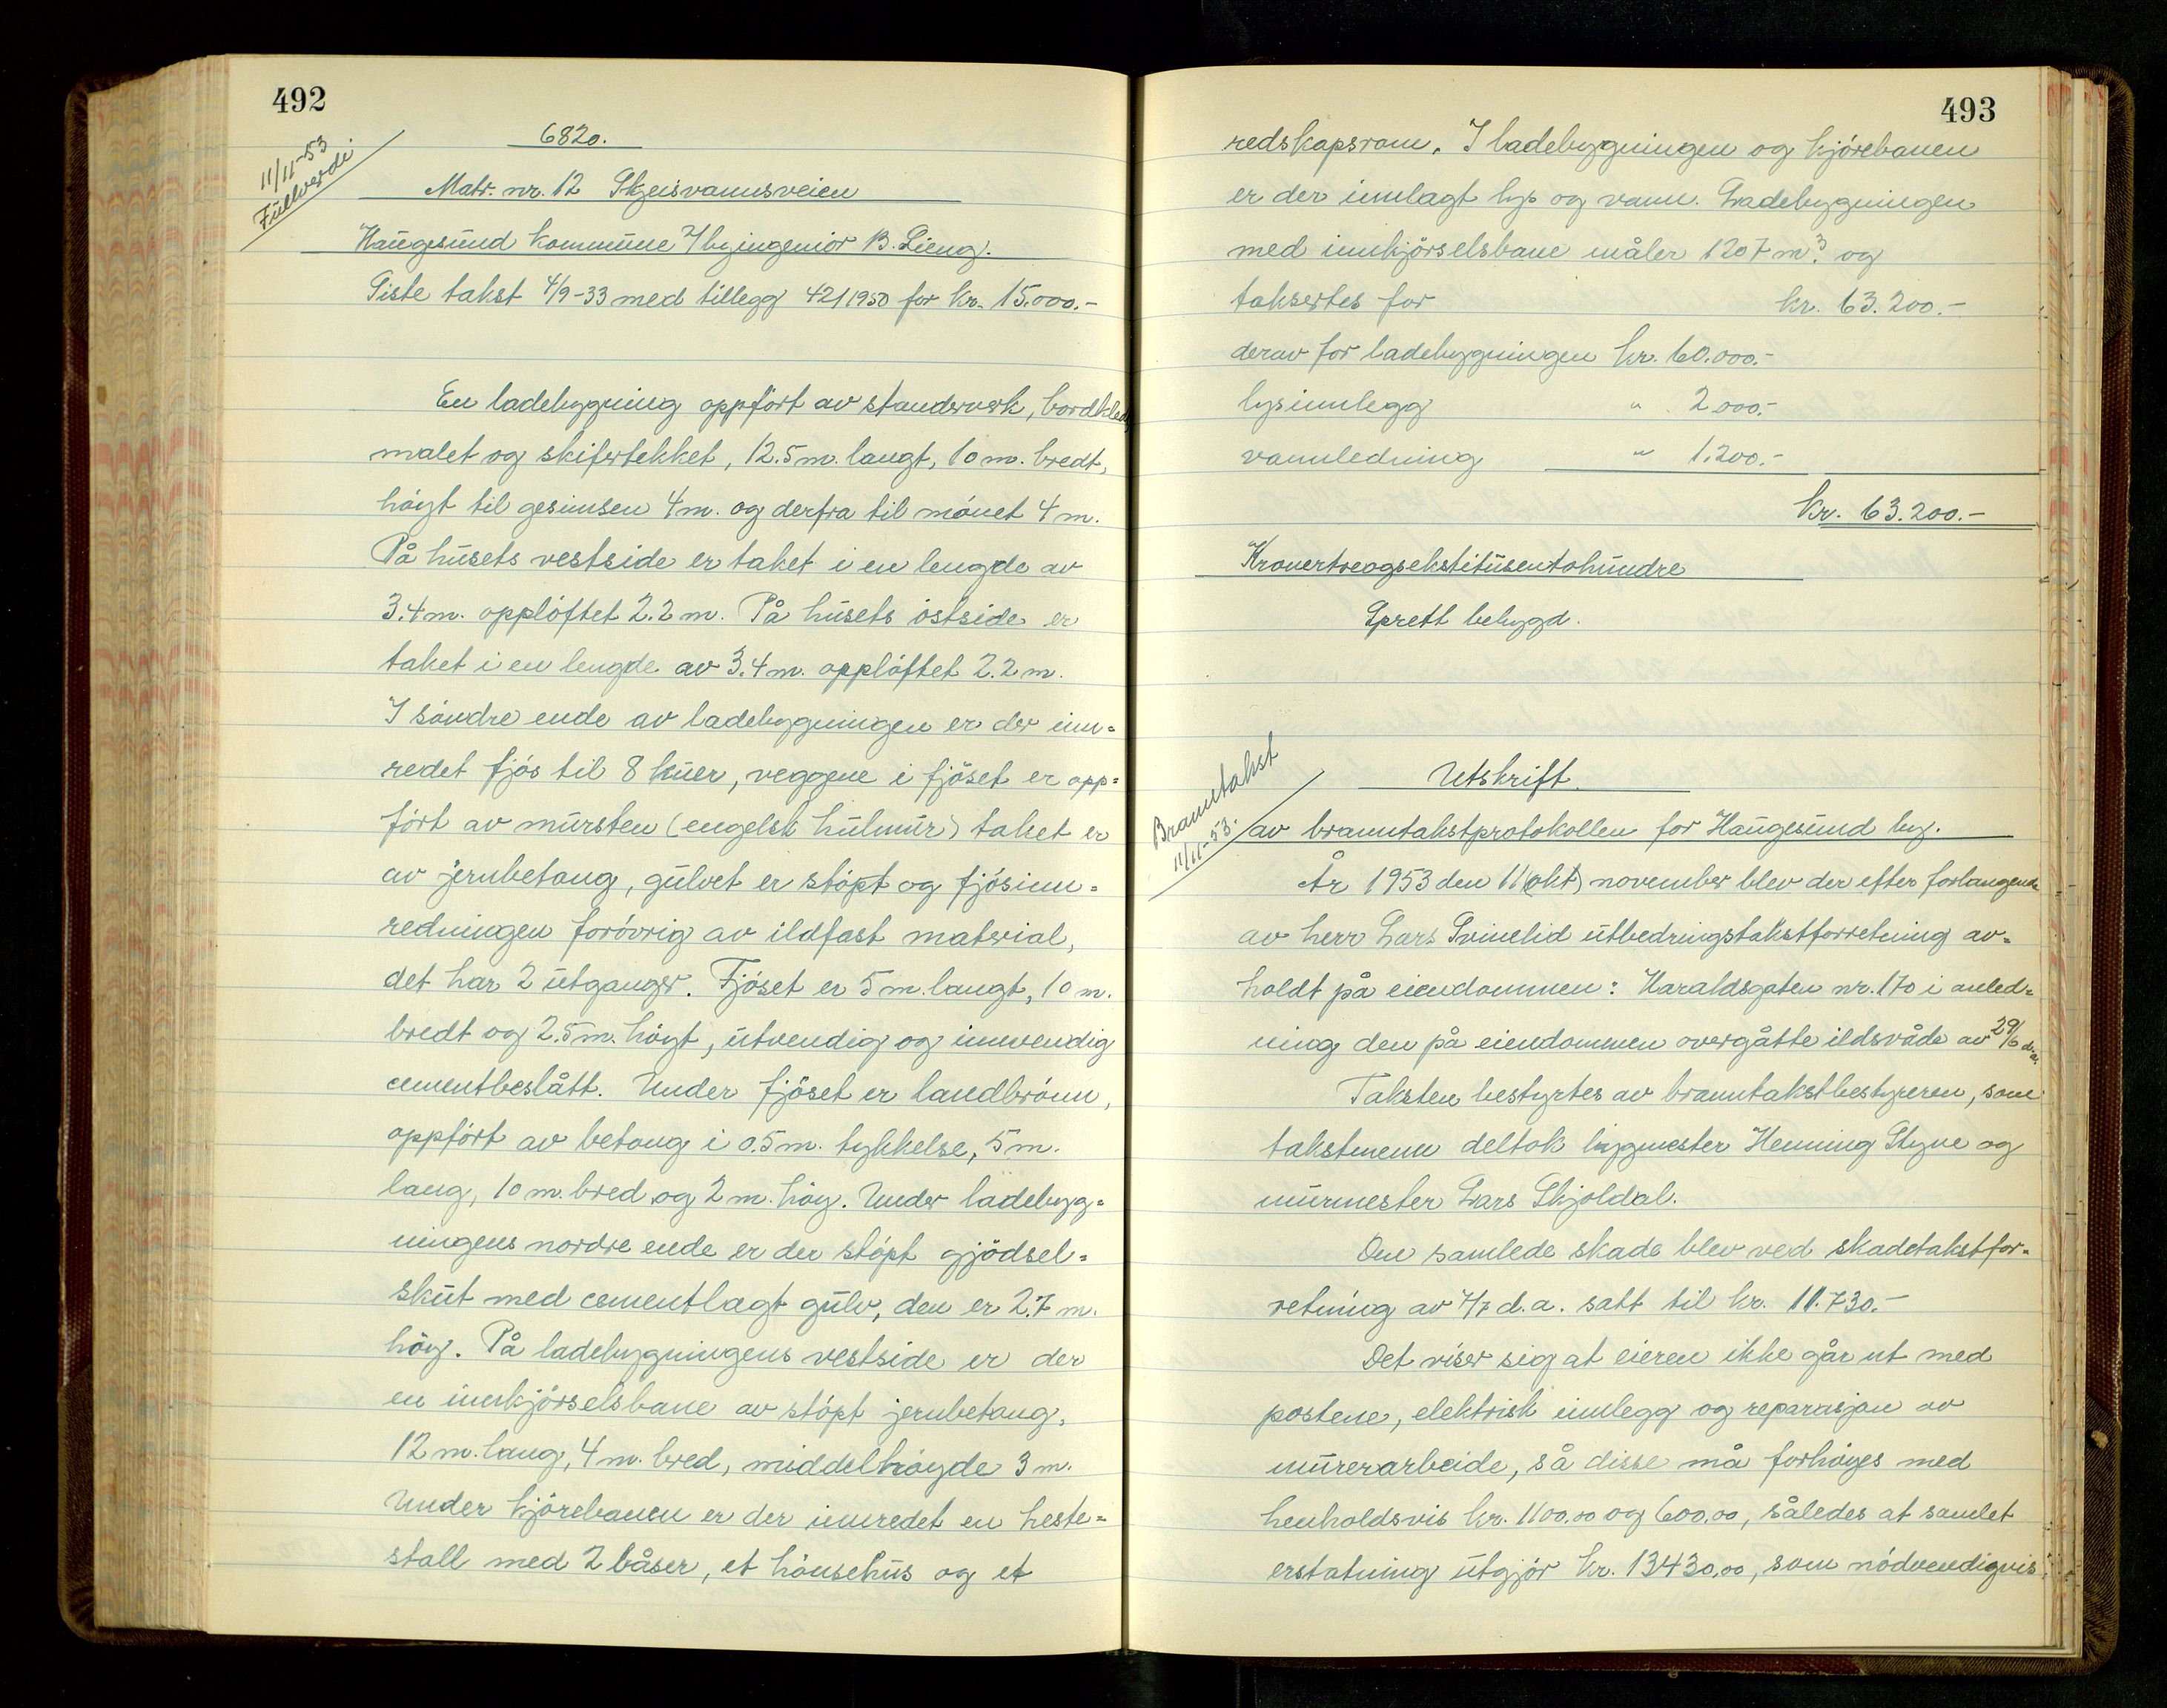 492
6820.
11/11-53
Fullverdi
Matr. nr. 12 Skeisvannsveien
Haugesund kommune v/byingeniör B. Lieng.
Siste takst 4/9-33 med tillegg 421/1950 for kr. 15.000.-
En ladebygning oppfört av standsverk, bordkledd,
malet og skifertekket, 12.5 m. langt, 10 m. bredt,
höyt til gesimsen 4 m. og derfra til mönet 4 m.
På husets vestside er taket i en lengde av
3.4 m. opplöftet 2.2 m. På husets östside er
taket i en lengde av 3.4 m. opplöftet 2.2 m.
I söndre ende av ladebygningen er der inn=
redet fjös til 8 kuer, veggene i fjöset er opp=
fört av mursten (engelsk hulmur) taket er
av jernbetong, gulvet er stöpt og fjösinn=
redningen forövrig av ildfast material,
det har 2 utganger. Fjöset er 5 m. langt, 10 m.
bredt og 2.5 m. höyt, utvendig og innvendig
cementbeslått. Under fjöset er landbrönn,
oppfört av betong i 0.5 m. tykkelse, 5 m.
lang, 10 m. bred og 2 m. höy. Under ladebyg=
ningens nordre ende er der stöpt gjödsel=
skut med cementlagt gulv, den er 2.7 m.
höy. På ladebygningens vestside er der
en innkjörselsbane av stöpt jernbetong,
12 m. lang, 4 m. bred, middelhöyde 3 m.
Under kjörebanen er der innredet en heste=
stall med 2 båser, et hönsehus og et
493
redskapsrom. I ladebygningen og kjörebanen
er der innlagt lys og vann. Ladebygningen
med innkjörselsbane måler 1207 m³. og
taksertes for kr. 63.200.-
derav for ladebygningen kr. 60.000.-
lysinnlegg " 2000.-
vannledning " 1.200.-
kr. 63.200.-
Kronertreogsekstitusentohundre
Sprett bebygd.
Branntakst
11/11-53.
Utskrift.
av branntakstprotokollen for Haugesund by.
År 1953 den 11 (okt) november blev der efter forlangende
av herr Lars Svinelid utbedringstakstforretning av=
holdt på eiendommen: Haraldsgaten nr. 170 i anled=
ning den på eiendommen overgåtte ildsvåde av 29/6 d.a.
Taksten bestyrtes av branntakstbestyreren, som
takstmenn deltok byggmester Henning Styve og
murmester Lars Skjoldal.
Den samlede skade blev ved skadetakstfor=
retning av 7/7 d.a. satt til kr. 11.730.-
Det viser sig at eieren ikke går ut med
postene, elektrisk innlegg og reparasjon av
murerarbeide, så disse må forhöyes med
henholdsvis kr. 1100,00 og 600,00, således at samlet
erstatning utgjör kr. 13430,00, som nödvendigvis